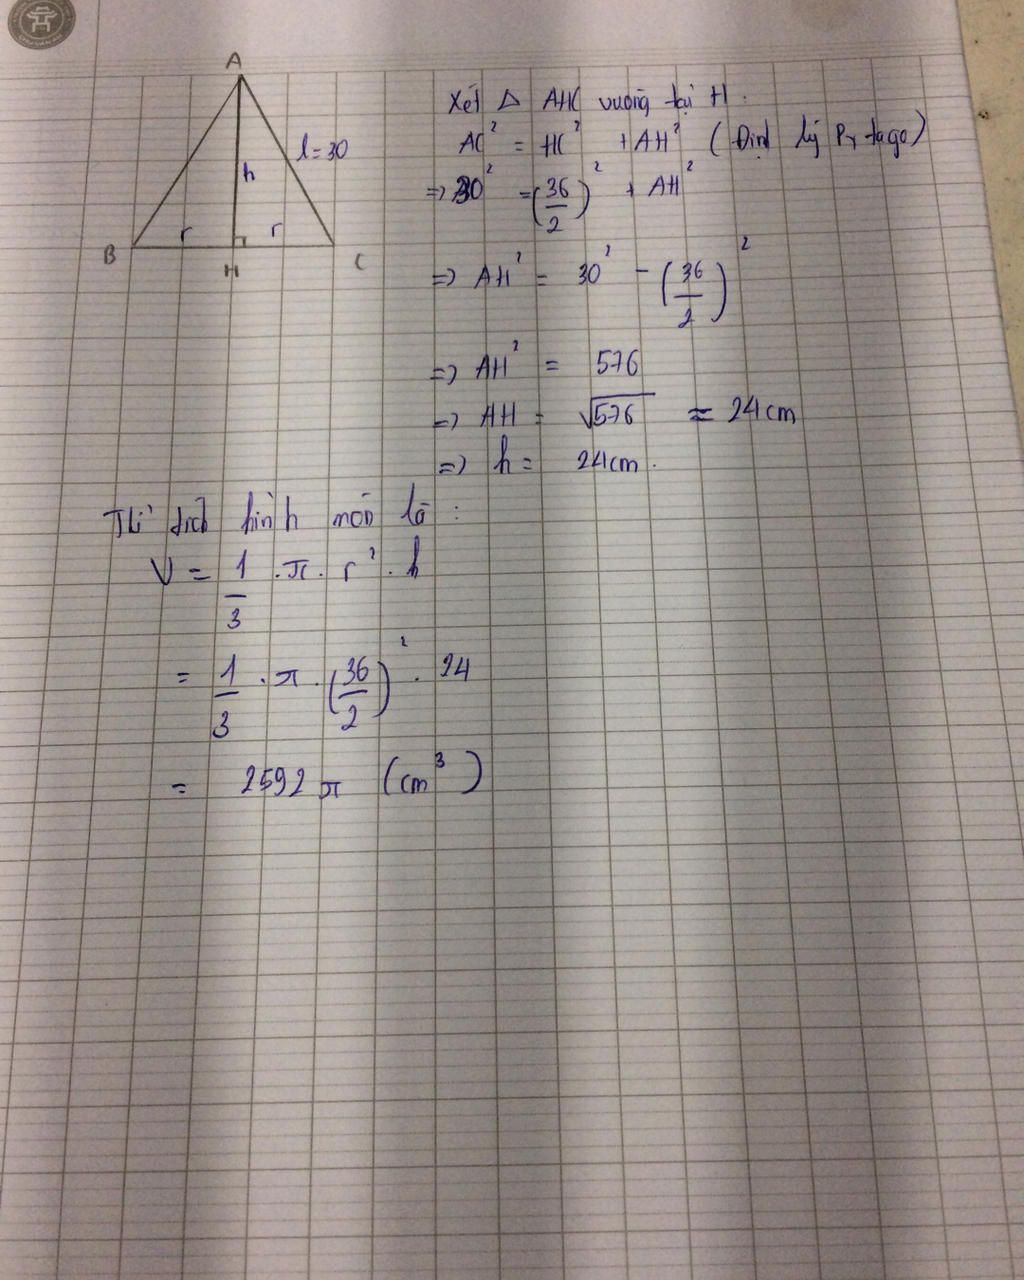 A
l = 30
h
r
r
B
H
C
Xét Δ AHC vuông tại H.
AC² = HC² + AH² (Định lý Pytago)
=> 30² = (36/2)² + AH²
=> AH² = 30² - (36/2)²
=> AH² = 576
=> AH = √576 ≈ 24cm
=> h = 24cm.
Thể tích hình nón là :
V = 1/3 . π . r² . h
= 1/3 . π . (36/2)² . 24
= 2592 π (cm³)